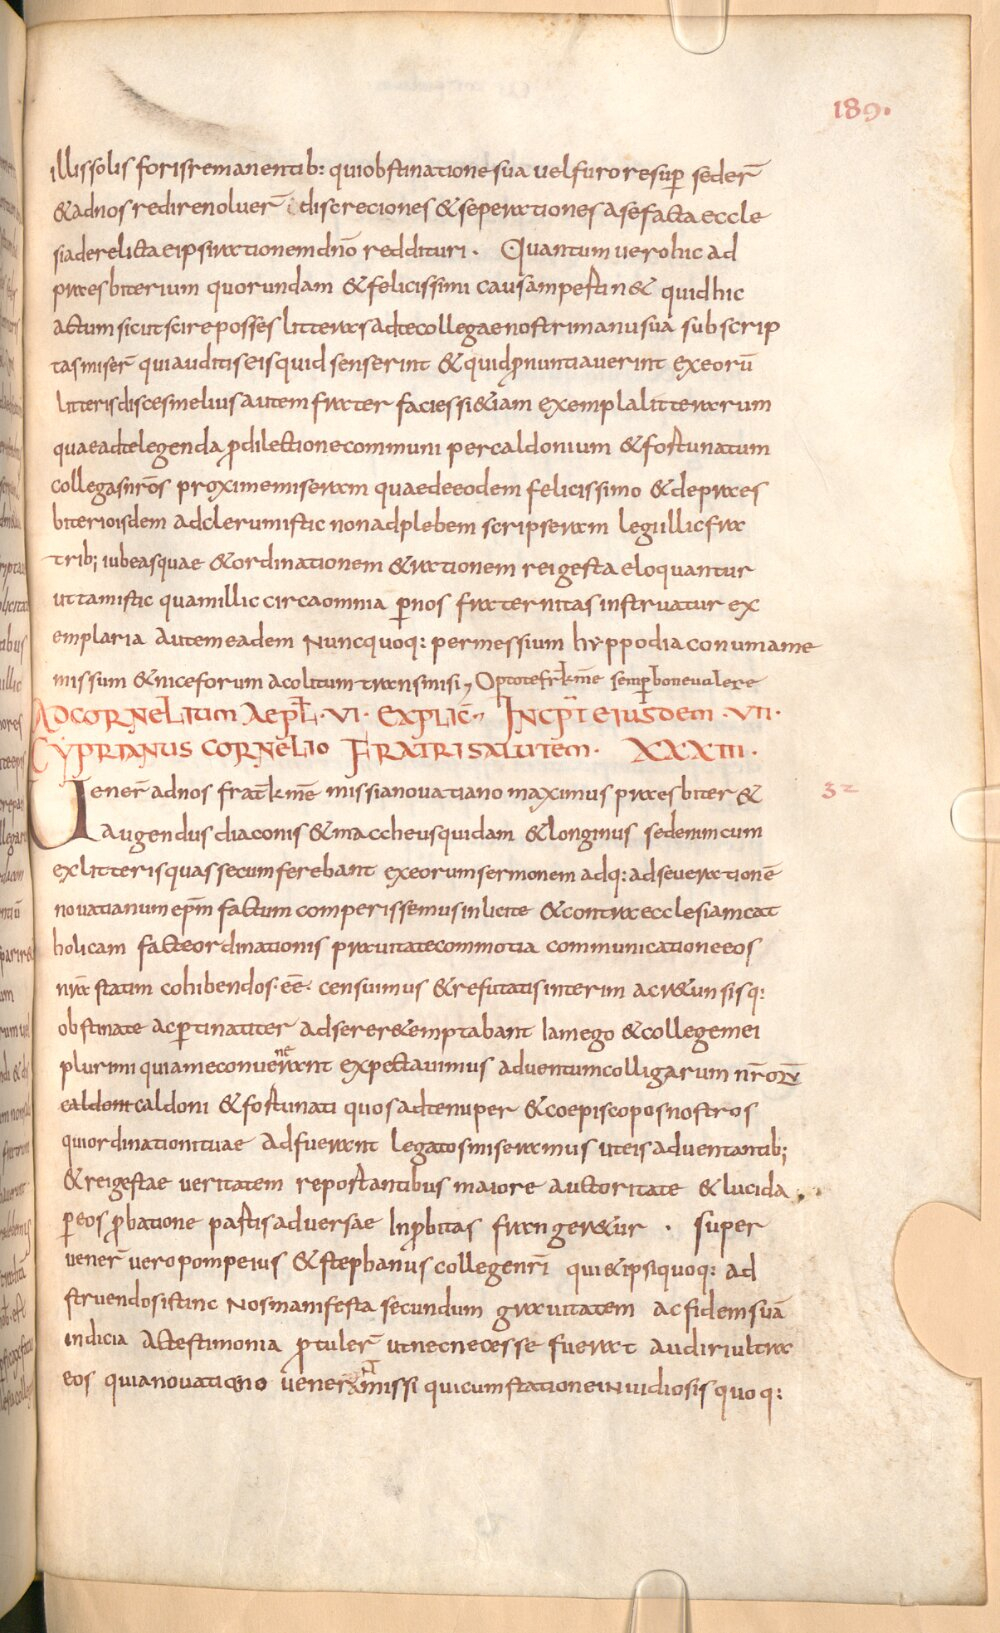 189.
illis solis foris remanentib: qui obstinatione sua vel furore sup̄ seder̄
& ad nos redire noluer̄ discreciones & seperationes a se facta eccle
sia derelicta eipsi rationem dn̄o reddituri . Quantum vero hic ad
praesbiterium quorundam & felicissimi causam pestin& quid hic
actum sic ut scire posses litteras ad te collegae nostri manu suā subscrip
tas miser̄ qui auditis eis quid senserint & quid p̄nuntiaverint ex eorū
litteris disces melius autem frater facies si &iam exempla litterarum
quae ad te legenda p̄ dilectione communi per caldonium & fortunatum
collegas nr̄os proxime miseram quae de eodem felicissimo & de praes
biterio isdem ad clerum istic non ad plebem scripseram legi illic fra
trib; iubeas quae & ordinationem & rationem rei gesta eloquantur
ut tam istic quam illic circa omnia p̄ nos fraternitas instruatur ex
emplaria autem eadem nunc quoq: per messium hyppodiaconum a me
missum & niceforum acolitum transmisi, Opto te fr̄ k̄me semp̄ bone valere
AD CORNELIUM AEPL̄. VI. EXPLIC̄ INCP̄T EIUSDEM . VII.
CYPRIANUS CORNELIO FRATRI SALUTEM. XXXIII.
Uener̄ ad nos frat̄ k̄me missi a novatiano maximus praesbiter &
32
augendus diaconis & maccheus quidam & longinus sed enim cum
ex litteris quas secum ferebant ex eorum sermonem adq: adseverationē
novatianum ep̄m factum comperissemus inlicite & contra ecclesiam cat
holicam facte ordinationis pravitate commoti a communicatione eos
nr̄a statim cohibendos ēē censuimus & refutatis interim ac r&unsis q:
obstinate ac p̄tinatiter adserer& emptabant lam ego & college mei
plurimi qui a me convenerant expectavimus adventum colligarum nr̄orum
caldoni & fortunati quos ad te nuper & coepiscopos nostros
qui ordinationi tuae adfuerant legatos miseramus ut eis adventantib;
& rei gestae veritatem reportantibus maiore auctoritate & lucida
p̄ eos p̄batione partis adversae inp̄bitas franger&ur . super
vener̄ vero pompeius & stephanus college nr̄i qui & ipsi quoq: ad
struendos istinc nos manifesta secundum gravitatem ac fidem suā
indicia ac testimonia p̄tuler̄ ut nec necesse fuerat audiri ultra
eos qui a novatiano venerant missi qui cum statione invidiosis quoq: